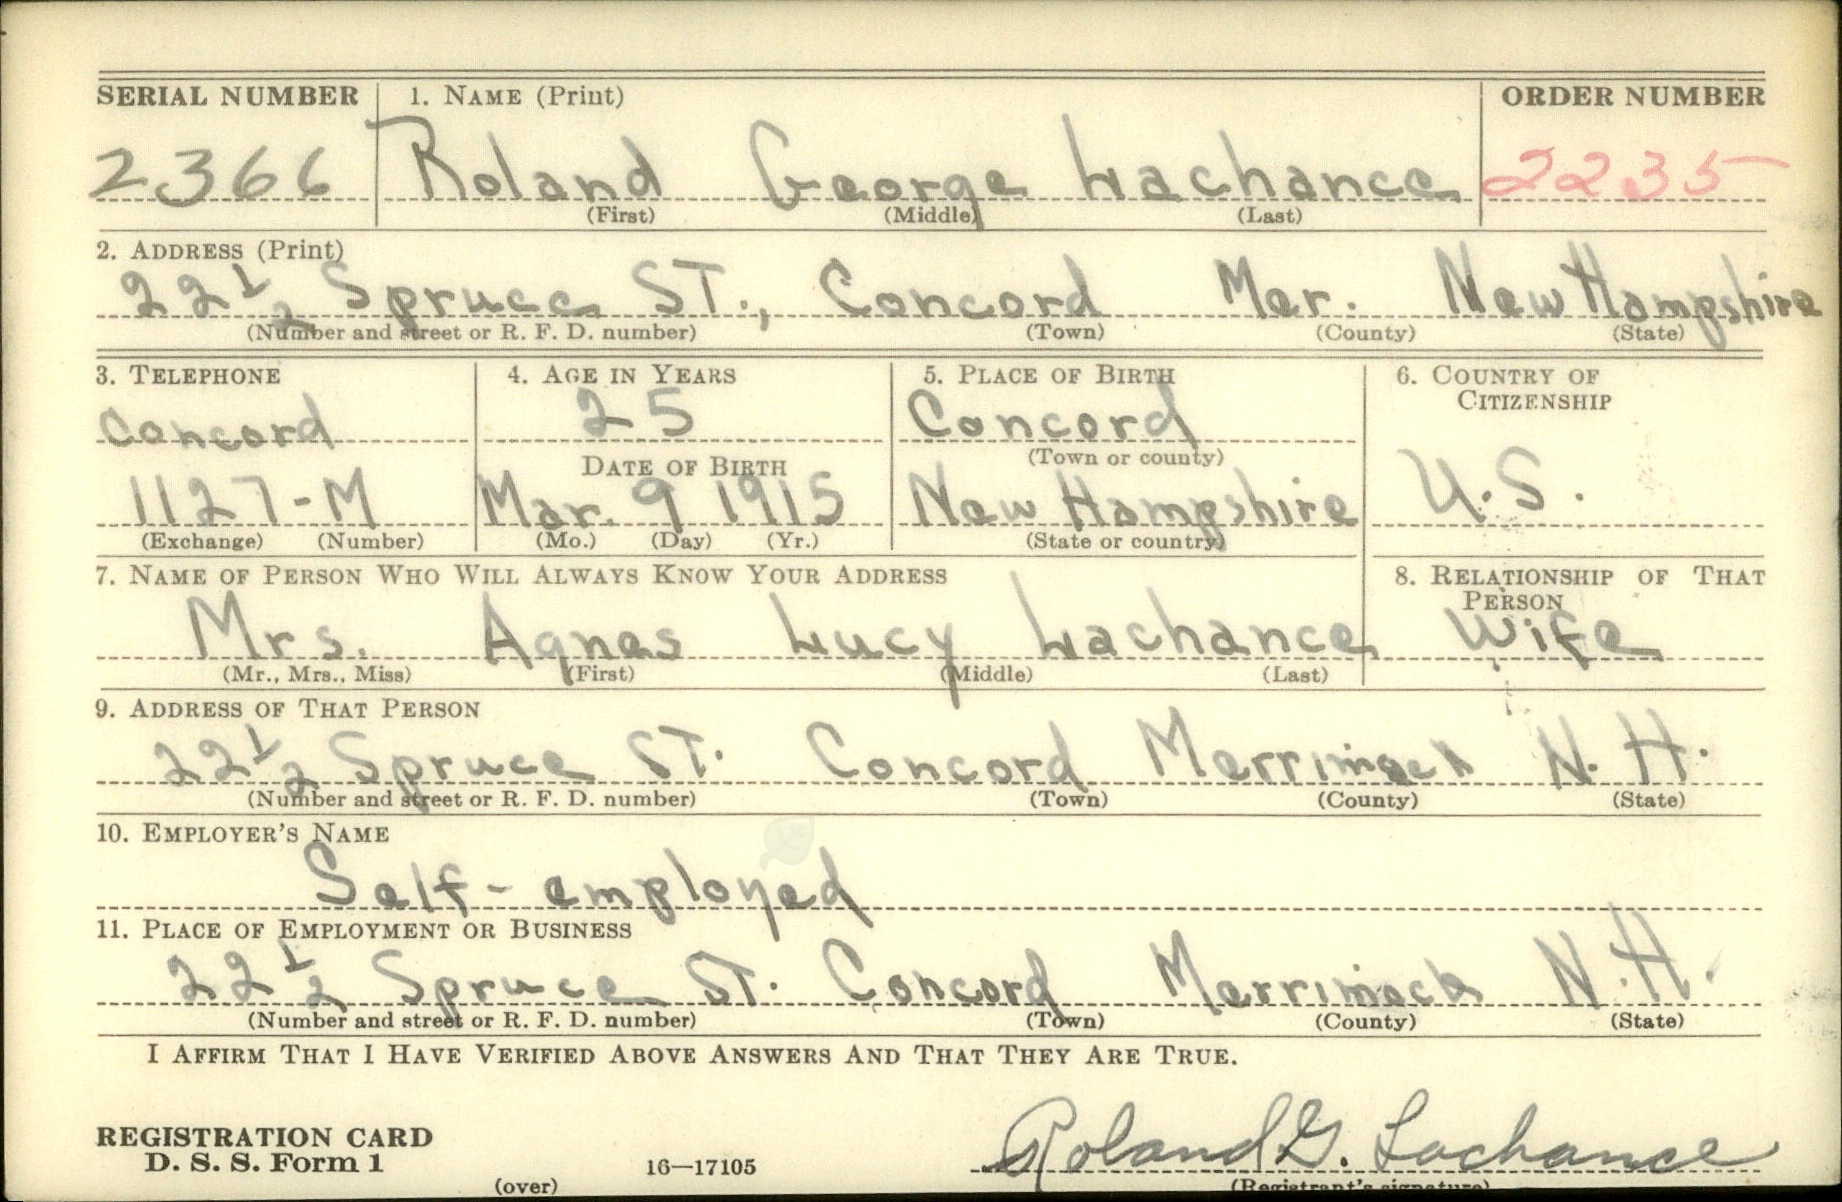 SERIAL NUMBER 1. NAME (Print) ORDER NUMBER
2366 Roland George Lachance 2235
(First) (Middle) (Last)
2. ADDRESS (Print)
22 1/2 Spruce ST., Concord Mer. New Hampshire
(Number and street or R. F. D. number) (Town) (County) (State)
3. TELEPHONE 4. AGE IN YEARS 5. PLACE OF BIRTH 6. COUNTRY OF
CITIZENSHIP
Concord 25 Concord
DATE OF BIRTH (Town or county)
1127-M Mar. 9 1915 New Hampshire U.S.
(Exchange) (Number) (Mo.) (Day) (Yr.) (State or country)
7. NAME OF PERSON WHO WILL ALWAYS KNOW YOUR ADDRESS 8. RELATIONSHIP OF THAT
PERSON
Mrs. Agnes Lucy Lachance Wife
(Mr., Mrs., Miss) (First) (Middle) (Last)
9. ADDRESS OF THAT PERSON
22 1/2 Spruce ST. Concord Merrimack N. H.
(Number and street or R. F. D. number) (Town) (County) (State)
10. EMPLOYER'S NAME
Self-employed
11. PLACE OF EMPLOYMENT OR BUSINESS
22 1/2 Spruce ST. Concord Merrimack N.H.
(Number and street or R. F. D. number) (Town) (County) (State)
I AFFIRM THAT I HAVE VERIFIED ABOVE ANSWERS AND THAT THEY ARE TRUE.
REGISTRATION CARD
D. S. S. Form 1 16—17105 Roland G. Lachance
(over) (Registrant's signature)